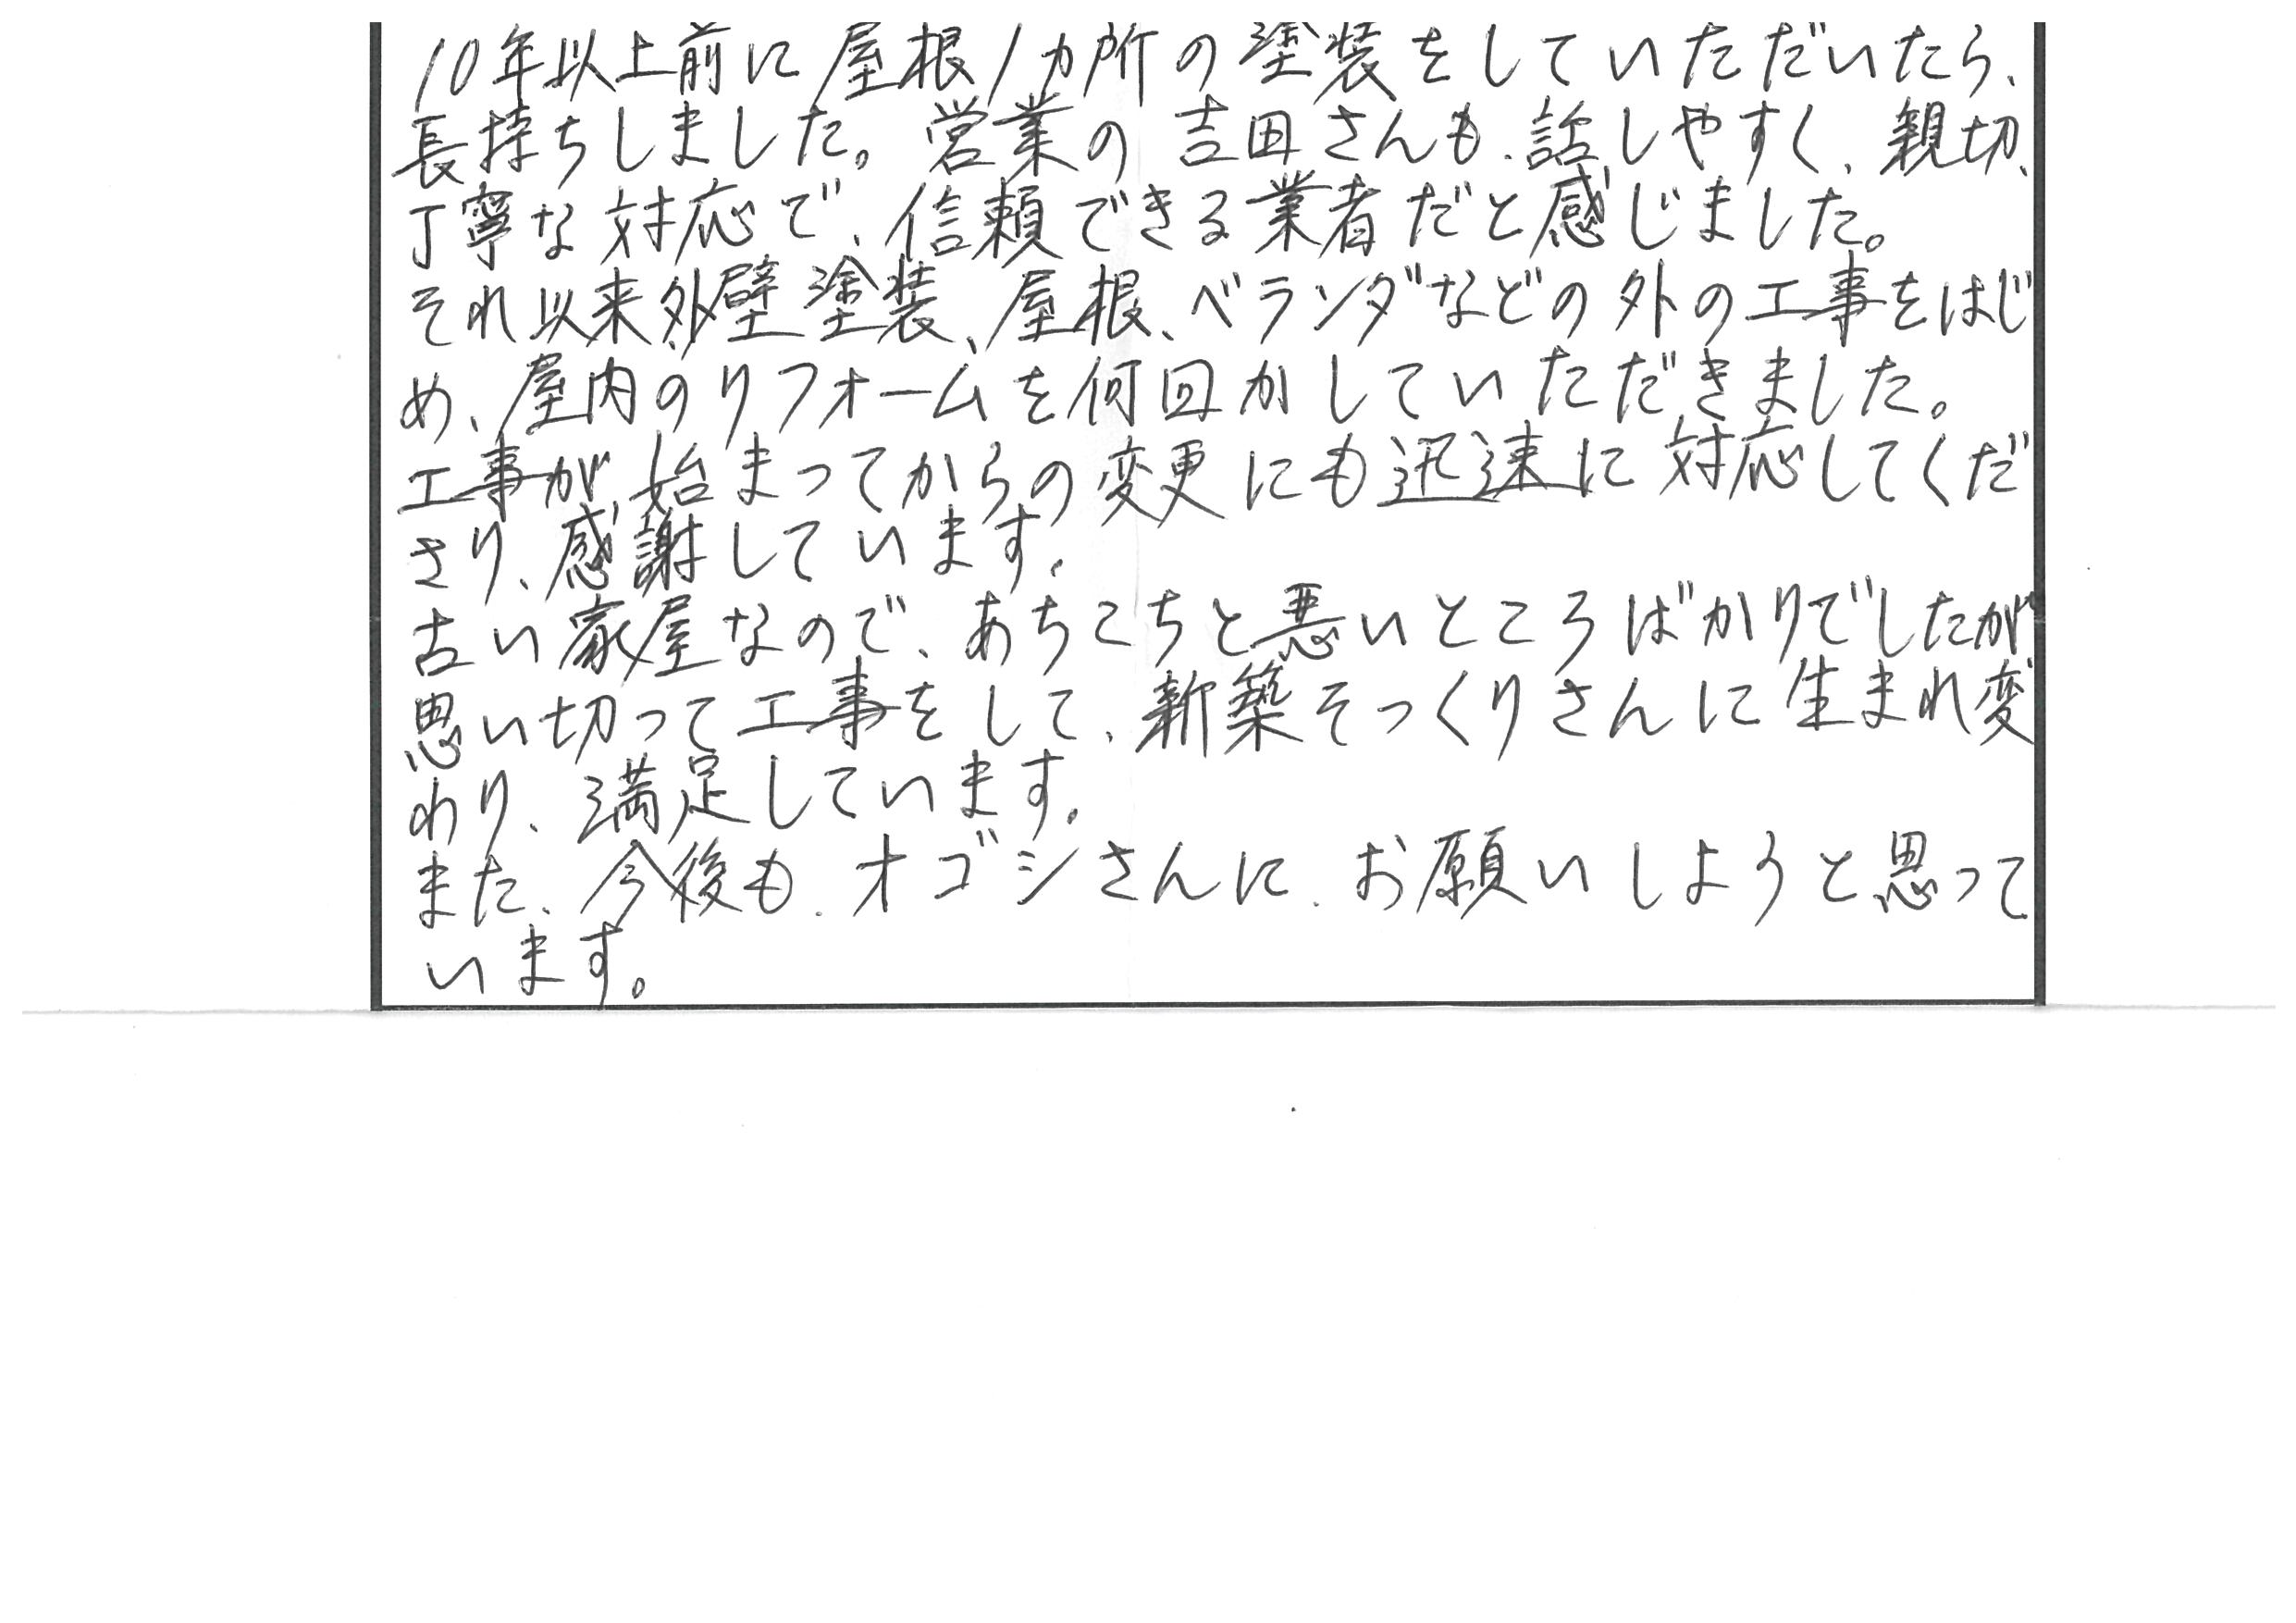 10年以上前に屋根1カ所の塗装をしていただいたら、
長持ちしました。営業の吉田さんも、話しやすく、親切、
丁寧な対応で、信頼できる業者だと感じました。
それ以来、外壁塗装、屋根、ベランダなどの外の工事をはじ
め、屋内のリフォームを何回かしていただきました。
工事が始まってからの変更にも迅速に対応してくだ
さり、感謝しています。
古い家屋なので、あちこちと悪いところばかりでしたが
思い切って工事をして、新築そっくりさんに生まれ変
わり、満足しています。
また、今後も、オゴシさんに、お願いしようと思って
います。